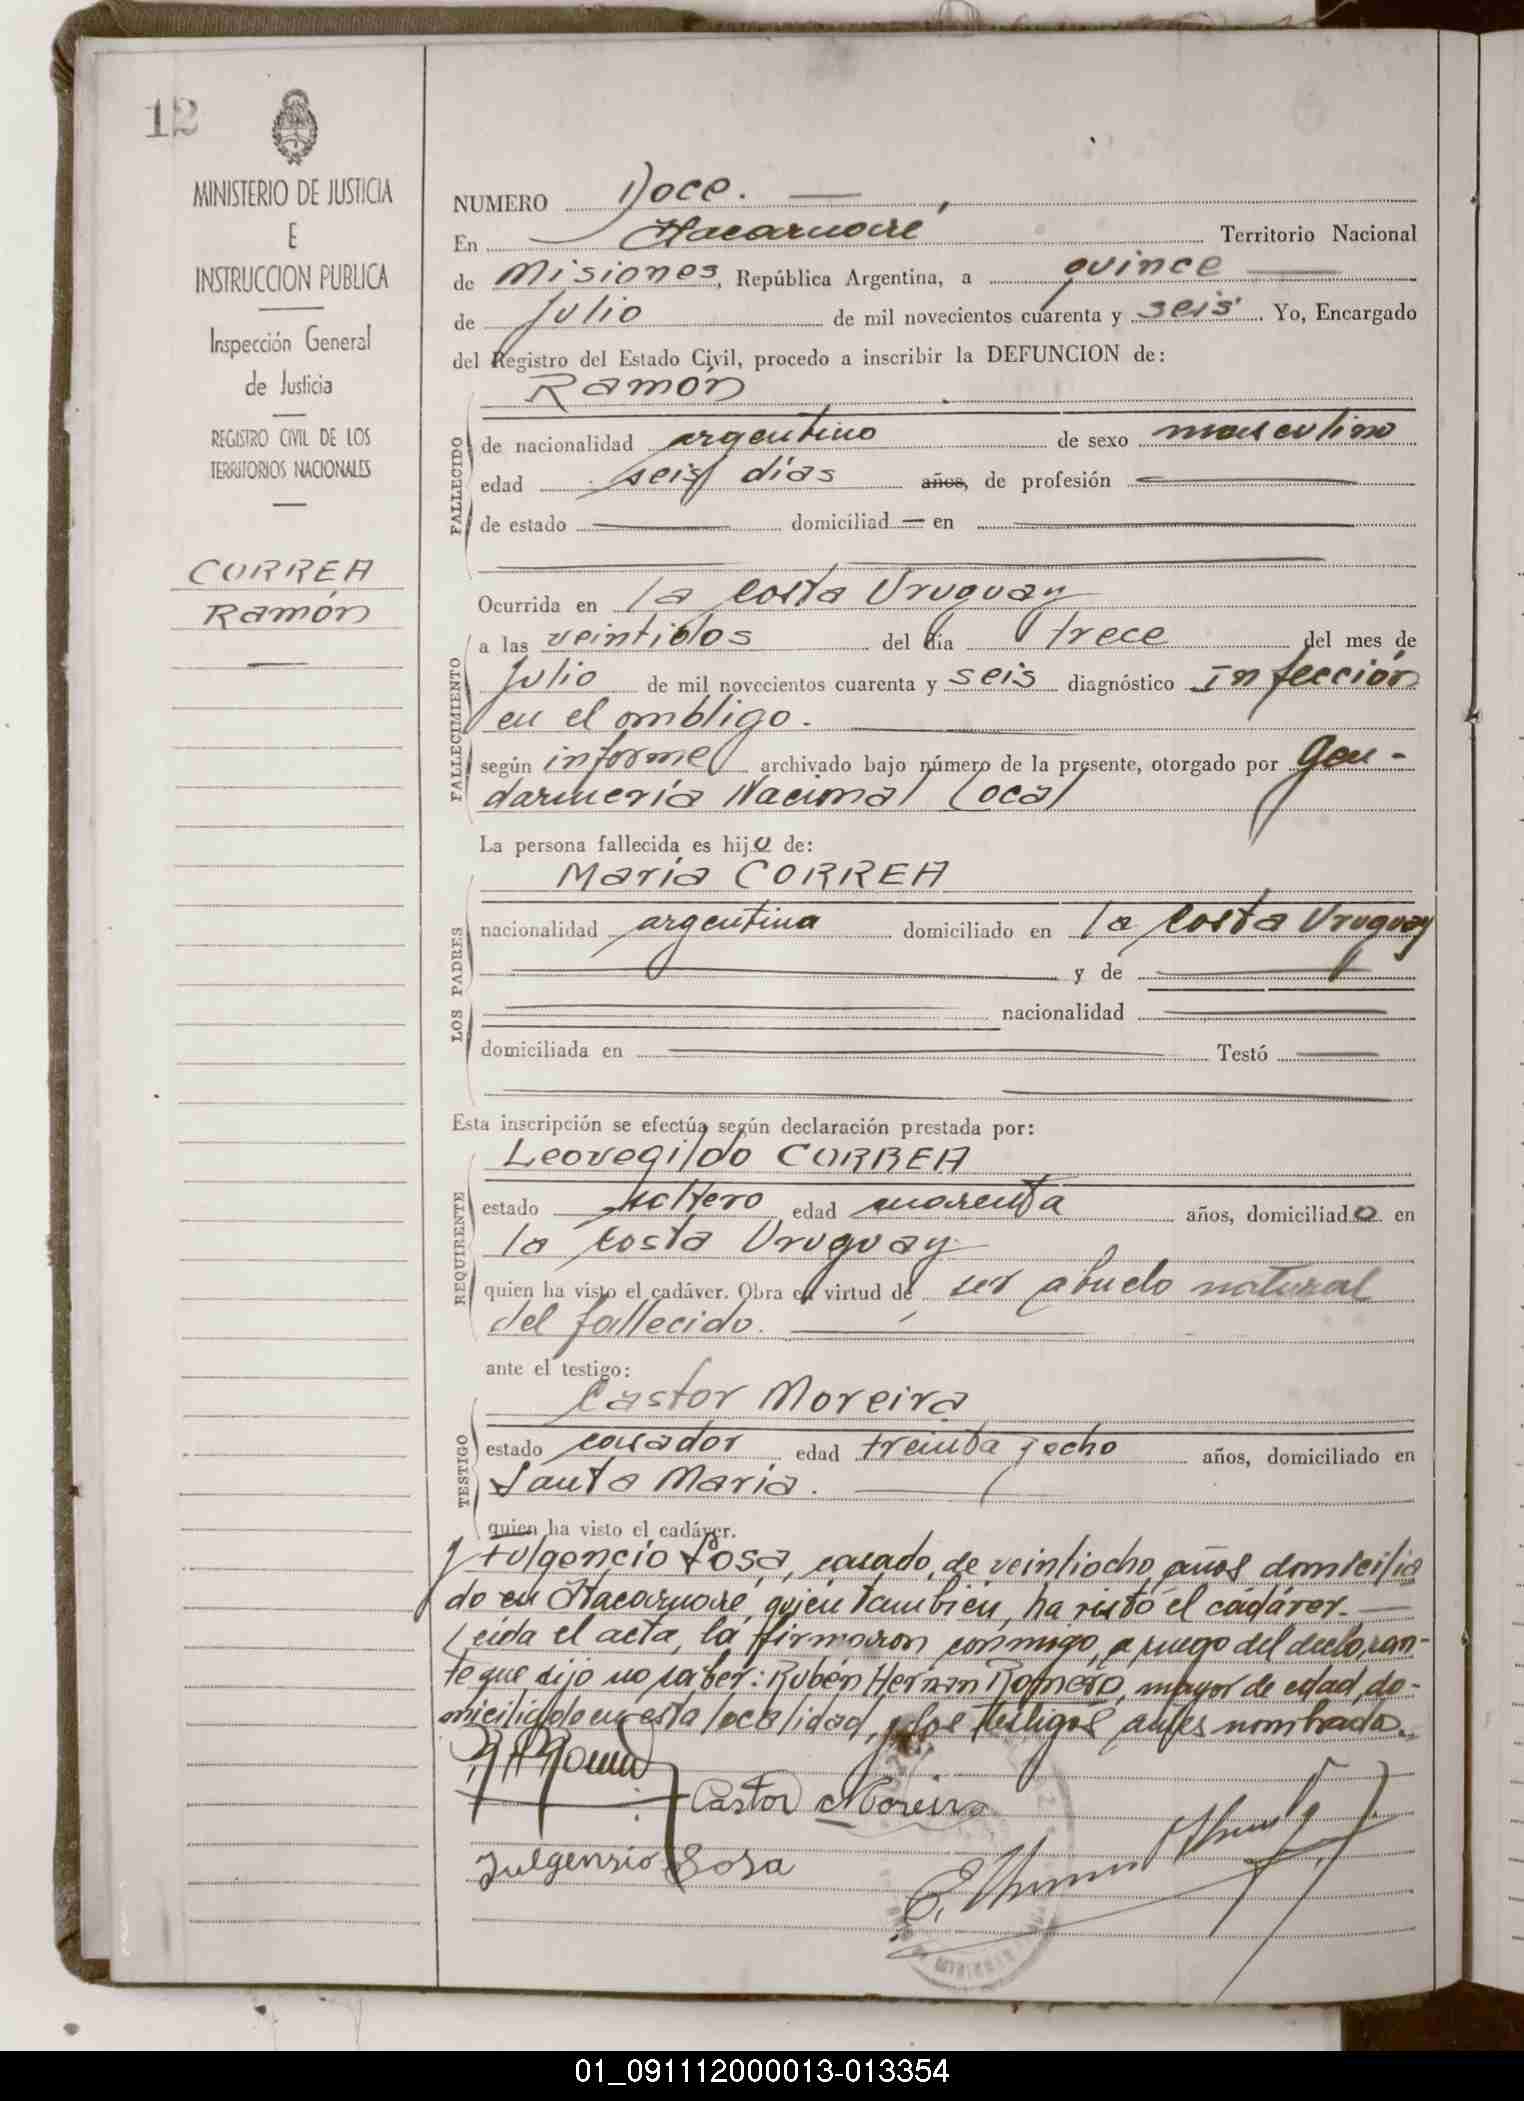 12
MINISTERIO DE JUSTICIA
E
INSTRUCCION PUBLICA
Inspección General
de Justicia
REGISTRO CIVIL DE LOS
TERRITORIOS NACIONALES
CORREA
Ramón
NUMERO Doce.
En Itacaruaré Territorio Nacional
de Misiones, República Argentina, a quince
de Julio de mil novecientos cuarenta y seis. Yo, Encargado
del Registro del Estado Civil, procedo a inscribir la DEFUNCION de:
Ramón
FALLECIDO
de nacionalidad argentino de sexo masculino
edad seis días años, de profesión
de estado domiciliad en
Ocurrida en la costa Uruguay
FALLECIMIENTO
a las veintidos del día trece del mes de
Julio de mil novecientos cuarenta y seis diagnóstico Infección
en el ombligo.
según informe archivado bajo número de la presente, otorgado por Gen-
darmería Nacional Local
La persona fallecida es hijo de:
LOS PADRES
María CORREA
nacionalidad argentina domiciliado en la costa Uruguay
y de
nacionalidad
domiciliada en Testó
Esta inscripción se efectúa según declaración prestada por:
REQUIRENTE
Leovegildo CORREA
estado soltero edad cuarenta años, domiciliado en
la costa Uruguay
quien ha visto el cadáver. Obra en virtud de ser abuelo natural
del fallecido.
ante el testigo:
TESTIGO
Castor Moreira
estado casador edad treinta y ocho años, domiciliado en
Santa María.
quien ha visto el cadáver.
y Fulgencio Sosa, casado, de veintiocho años domicilia
do en Itacaruaré, quien también, ha visto el cadáver.
Leida el acta, la firmaron conmigo, a ruego del declaran-
te que dijo no saber: Rubén Hernan Romero, mayor de edad, do-
miciliado en esta localidad, y los testigos antes nombrados.
Castor Moreira
Julgensio Sosa
01_091112000013-013354